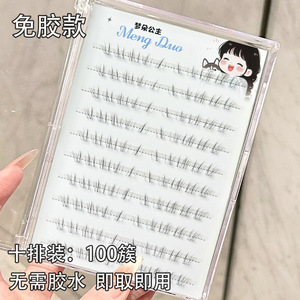 免胶款
梦朵公主
Meng Duo
十排装：100簇
无需胶水 即取即用